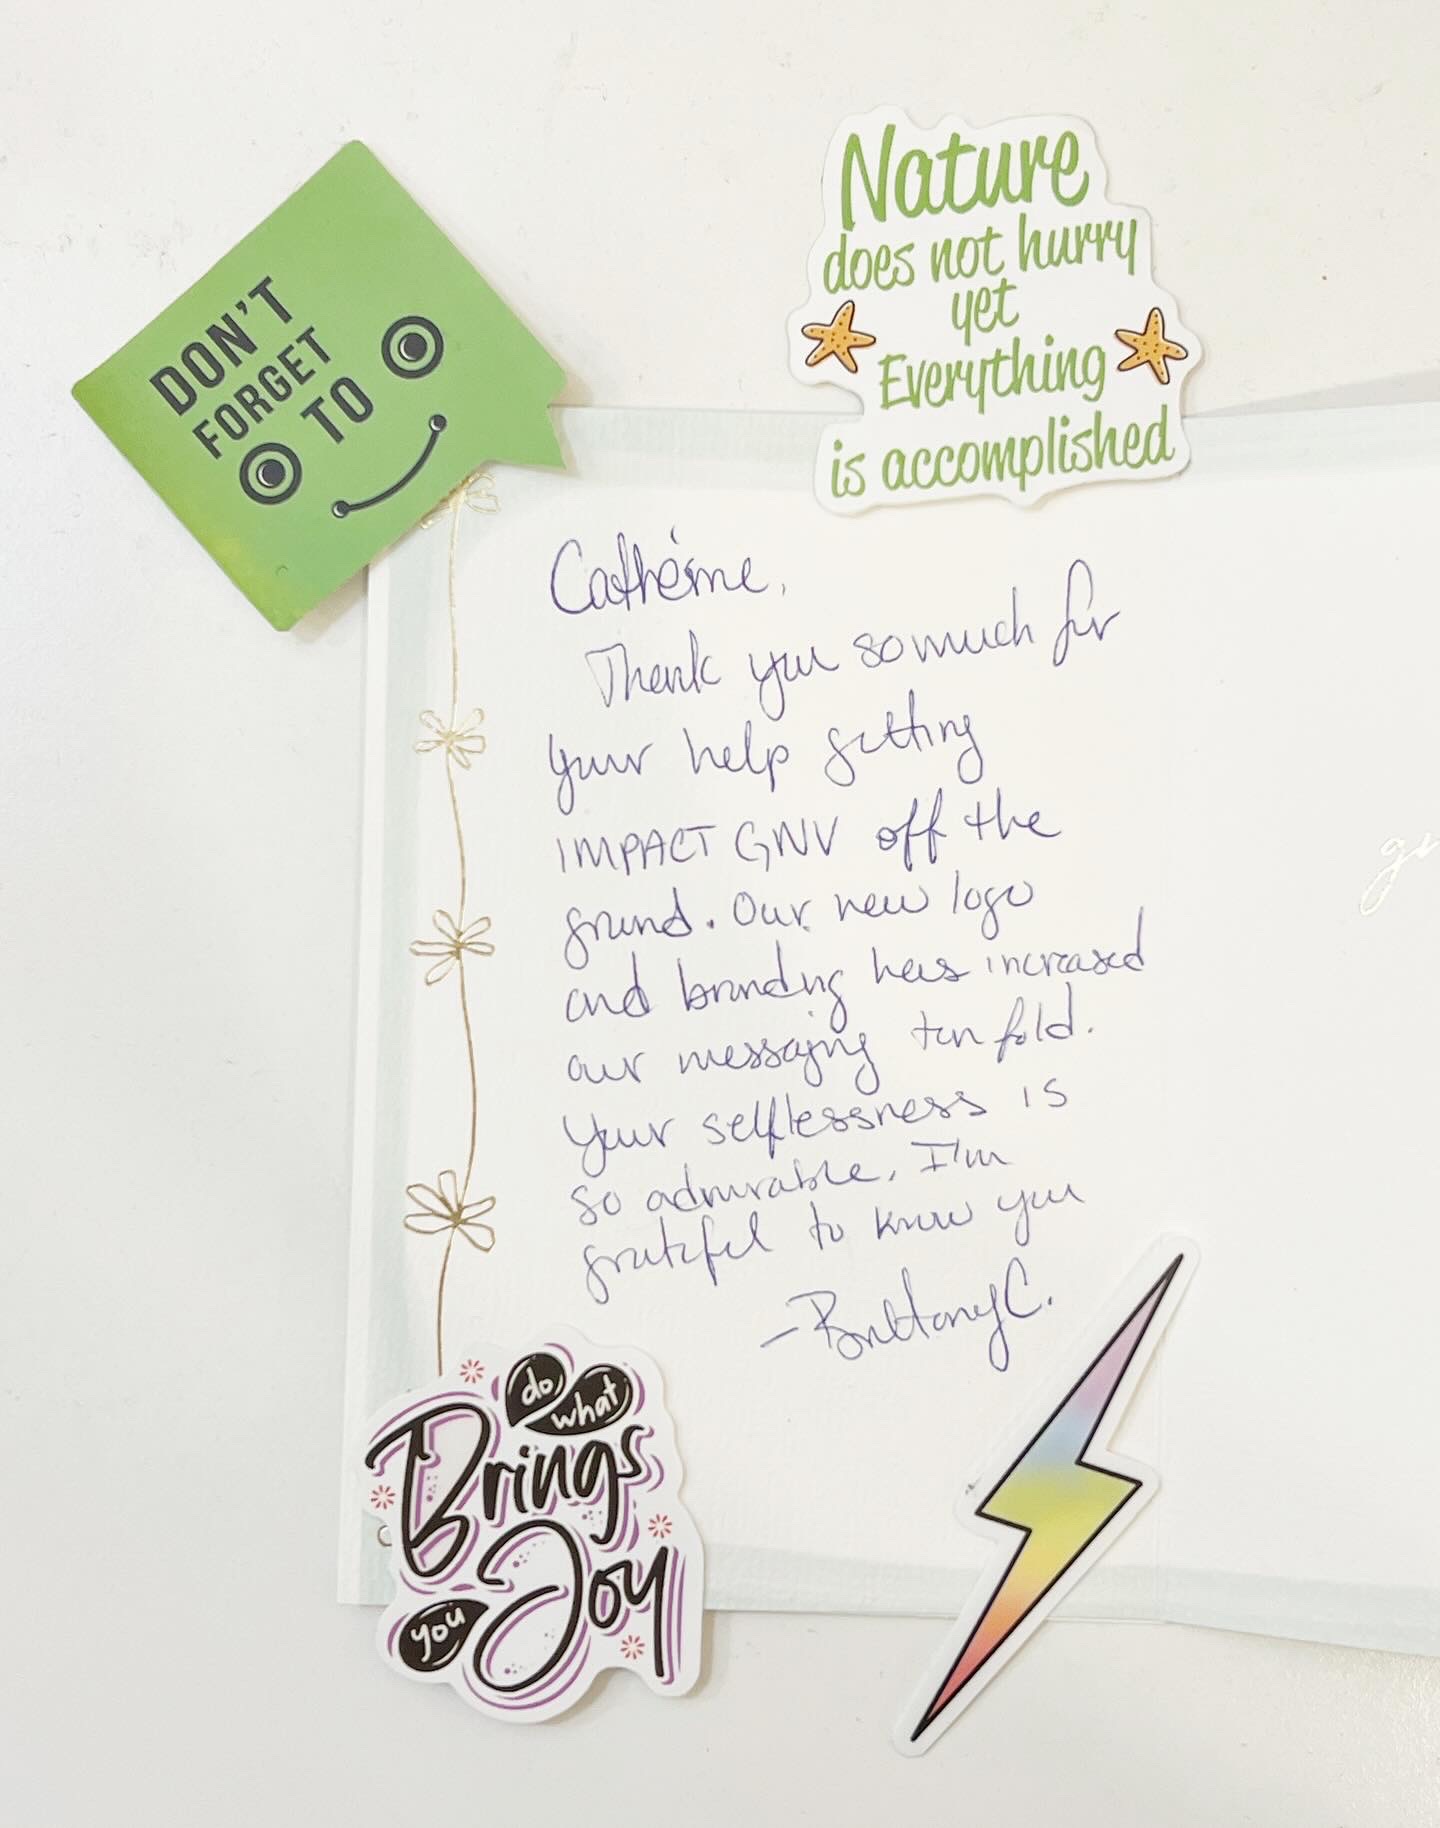 DON'T
FORGET
TO
Nature
does not hurry
yet
Everything
is accomplished
Catherine,
Thank you so much for
your help getting
IMPACT GNV off the
ground. Our new logo
and branding has increased
our messaging ten fold.
Your selflessness is
so admirable. I'm
grateful to know you
-Brittany C.
do
what
Brings
Joy
you
gr